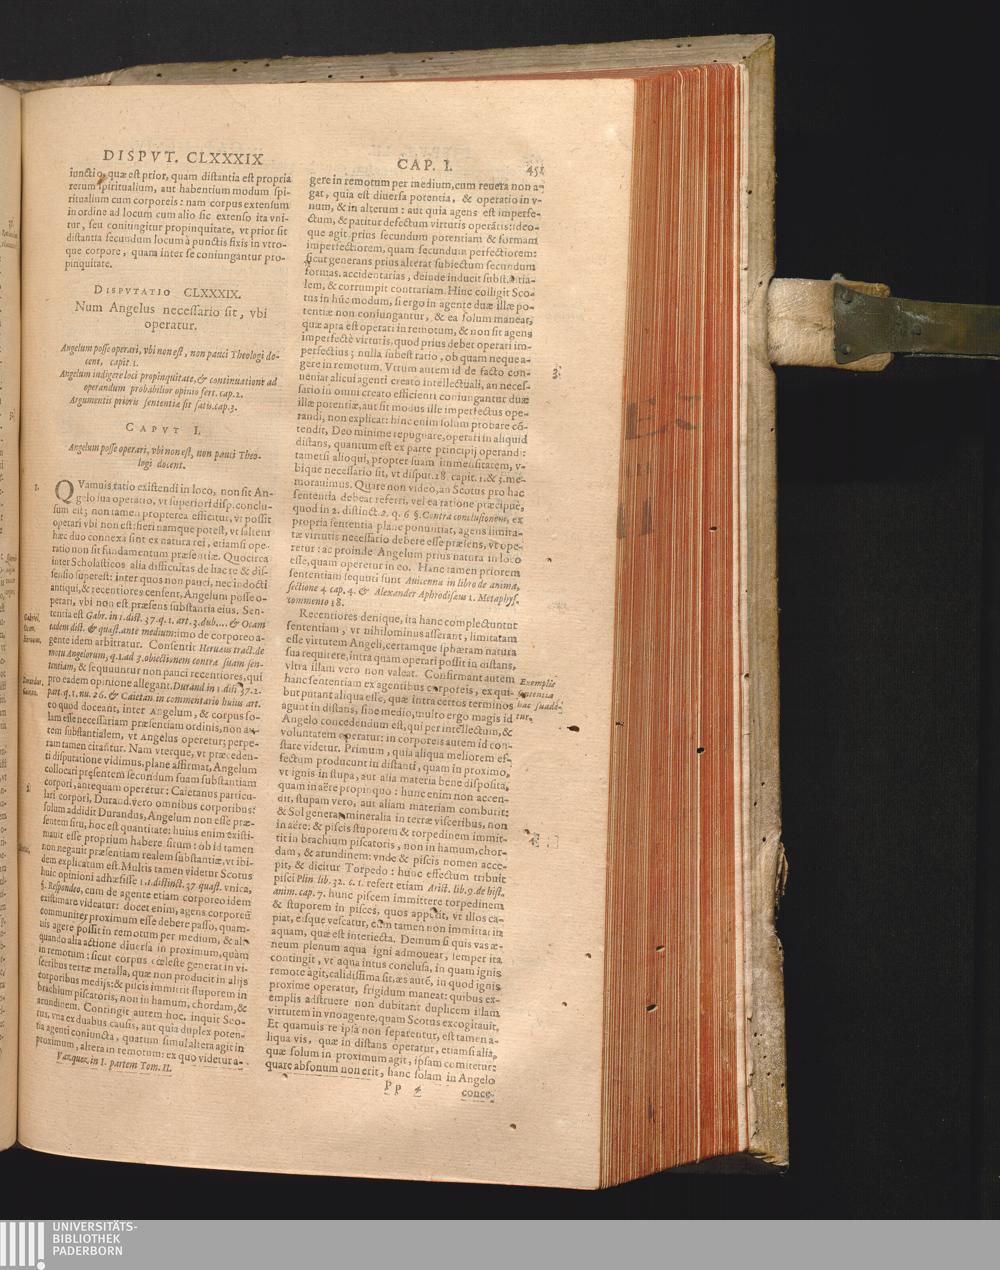 DISPVT. CLXXXIX
iunctio, quæ est prior, quam distantia est propria
rerum spiritualium, aut habentium modum spi-
ritualium cum corporeis: nam corpus extensum
in ordine ad locum cum alio sic extenso ita vni-
tur, seu coniungitur propinquitate, vt prior sit
distantia secundum locum à punctis fixis in vtro-
que corpore, quam inter se coniungantur pro-
pinquitate.
DISPVTATIO CLXXXIX.
Num Angelus necessario sit, vbi
operatur.
Angelum posse operari, vbi non est, non pauci Theologi do-
cent, capit. 1.
Angelum indigere loci propinquitate, & continuatione ad
operandum probabilior opinio fert. cap. 2.
Argumentis prioris sententiæ fit satis. cap. 3.
CAPVT I.
Angelum posse operari, vbi non est, non pauci Theo-
logi docent.
1.
QVamuis ratio existendi in loco, non sit An-
gelo sua operatio, vt superiori disp. conclu-
sum est; non tamen propterea efficitur, vt possit
operari vbi non est: fieri namque potest, vt saltem
hæc duo connexa sint ex natura rei, etiamsi ope-
ratio non sit fundamentum præsentiæ. Quocirca
inter Scholasticos alia difficultas de hac re & dis-
sensio superest: inter quos non pauci, nec indocti
antiqui, & recentiores censent, Angelum posse o-
perari, vbi non est præsens substantia eius. Sen-
tentia est Gabr. in 1. dist. 37. q. 1. art. 3. dub. & Ocam
eadem dist. & quæst. ante medium: imo de corporeo a-
gente idem arbitratur. Consentit Heruæus tract. de
motu Angelorum, q. 1. ad 3. obiectionem contra suam sen-
tentiam, & sequuntur non pauci recentiores, qui
pro eadem opinione allegant. Durand in 1. dist. 37. 2.
part. q. 1. nu. 26. & Caietan. in commentario huius art.
eo quod doceant, inter Angelum, & corpus so-
lam esse necessariam præsentiam ordinis, non au-
tem substantialem, vt Angelus operetur; perpe-
ram tamen citantur. Nam vterque, vt præceden-
ti disputatione vidimus, plane affirmat, Angelum
collocari præsentem secundum suam substantiam
corpori, antequam operetur: Caietanus particu-
lari corpori, Durand. vero omnibus corporibus:
solum addidit Durandus, Angelum non esse præ-
sentem situ, hoc est quantitate: huius enim existi-
mauit esse proprium habere situm: ob id tamen
non negauit præsentiam realem substantiæ, vt ibi-
dem explicatum est. Multis tamen videtur Scotus
huic opinioni adhæsisse 1. distinct. 37 quæst. vnica,
§. Respondeo, cum de agente etiam corporeo idem
existimare videatur: docet enim, agens corporeū
communiter proximum esse debere passo, quam-
uis agere possit in remotum per medium, & ali-
quando alia actione diuersa in proximum, quàm
in remotum: sicut corpus cœleste generat in vi-
sceribus terræ metalla, quæ non producit in alijs
corporibus medijs: & piscis immittit stuporem in
brachium piscatoris, non in hamum, chordam, &
arundinem. Contingit autem hoc, inquit Sco-
tus, vna ex duabus causis, aut quia duplex poten-
tia agenti coniuncta, quarum simul altera agit in
proximum, altera in remotum: ex quo videtur a-
Vazquez. in I. partem Tom. II.
CAP. I.
451
gere in remotum per medium, cum reuera non a-
gat, quia est diuersa potentia, & operatio in v-
num, & in alterum: aut quia agens est imperfe-
ctum, & patitur defectum virtutis operātis: ideo-
que agit prius secundum potentiam & formam
imperfectiorem, quam secundum perfectiorem:
sicut generans prius alterat subiectum secundum
formas. accidentarias, deinde inducit substantia-
lem, & corrumpit contrariam. Hinc colligit Sco-
tus in hūc modum, si ergo in agente duæ illæ po-
tentiæ non coniungantur, & ea solum maneat,
quæ apta est operari in remotum, & non sit agens
imperfectè virtutis, quod prius debet operari im-
perfectius; nulla subest ratio, ob quam nequea-
gere in remotum. Vtrum autem id de facto con-
ueniat alicui agenti creato intellectuali, an neces-
sario in omni creato efficienti coniungantur duæ
illæ potentiæ, aut sit modus ille imperfectus ope-
randi, non explicat: hinc enim solum probare cō-
tendit, Deo minime repugnare, operari in aliquid
distans, quantum est ex parte principij operandi:
tametsi alioqui, propter suam immensitatem, v-
bique necessario sit, vt disput. 28. capit. 1. & 3. me-
morauimus. Quare non video, an Scotus pro hac
sententia debeat referri, vel ea ratione præcipue,
quod in 2. distinct. 2. q. 6 §. Contra conclusionem, ex
propria sententia plane ponuntiat, agens limita-
tæ virtutis necessario debere esse præsens, vt ope-
retur: ac proinde Angelum prius natura in loco
esse, quam operetur in eo. Hanc tamen priorem
sententiam sequuti sunt Auicenna in libro de anima,
sectione 4 cap. 4. & Alexander Aphrodisæus 1. Metaphys.
commento 18.
Recentiores denique, ita hanc complectuntur
sententiam, vt nihilominus asserant, limitatam
esse virtutem Angeli, certamque sphæram natura
sua requirere, intra quam operari possit in distans,
vltra illam vero non valeat. Confirmant autem
hanc sententiam ex agentibus corporeis, ex qui-
but putant aliqua esse, quæ intra certos terminos
agunt in distans, sine medio, multo ergo magis id
Angelo concedendum est, qui per intellectum, &
voluntatem operatur: in corporeis autem id con-
stare videtur. Primum, quia aliqua meliorem ef-
fectum producunt in distanti, quam in proximo,
vt ignis in stupa, aut alia materia bene disposita,
quam in aëre propinquo: hunc enim non accen-
dit, stupam vero, aut aliam materiam comburit:
& Sol generat mineralia in terræ visceribus, non
in aëre: & piscis stuporem & torpedinem immit-
tit in brachium piscatoris, non in hamum, chor-
dam, & arundinem: vnde & piscis nomen acce-
pit, & dicitur Torpedo: hunc effectum tribuit
pisci Plin. lib. 32. c. 1. refert etiam Arist. lib. 9. de hist.
anim. cap. 7. hunc piscem immittere torpedinem
& stuporem in pisces, quos appetit, vt illos ca-
piat, eisque vescatur, cum tamen non immittat in
aquam, quæ est interiecta. Demum si quis vas æ-
neum plenum aqua igni admoueat, semper ita
contingit, vt aqua intus conclusa, in quam ignis
remote agit, calidissima sit, æs autē, in quod ignis
proxime operatur, frigidum maneat: quibus ex-
emplis adstruere non dubitant duplicem illam
virtutem in vno agente, quam Scotus excogitauit,
Et quamuis re ipsa non separentur, est tamen a-
liqua vis, quæ in distans operatur, etiamsi alia,
quæ solum in proximum agit, ipsam comitetur:
quare absonum non erit, hanc solam in Angelo
Pp 4
conce-
3.
Exemplis
sententia
hæc suade-
tur.
4.
Gabriel.
Ocam.
Heruæus.
Durandus.
Caietan.
2.
UNIVERSITÄTS-
BIBLIOTHEK
PADERBORN